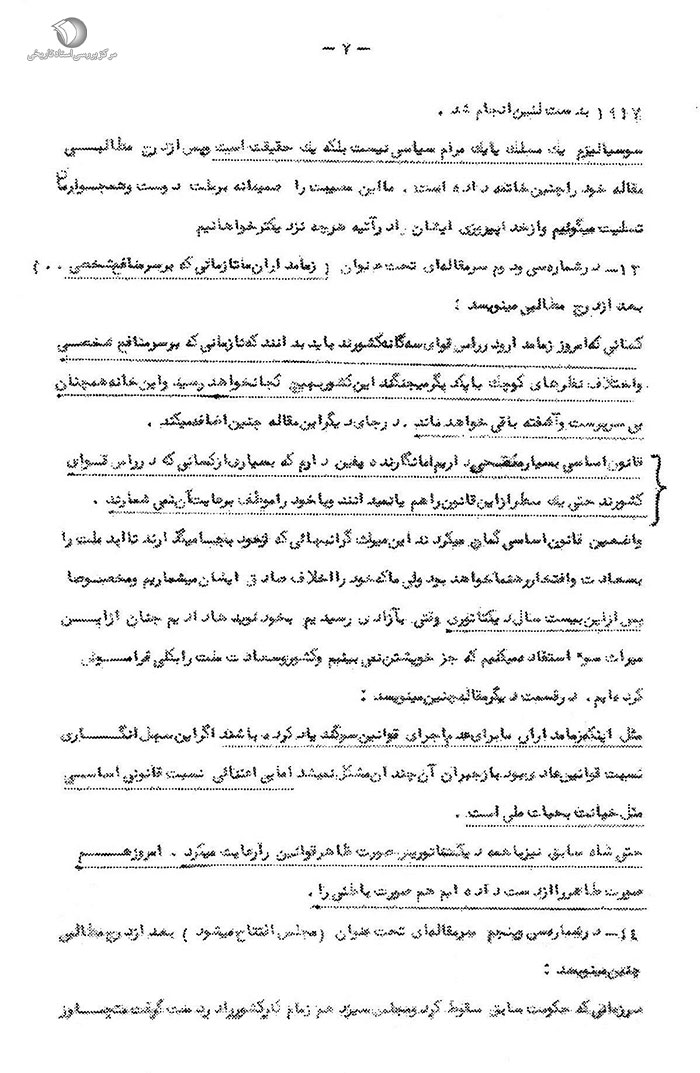 مرکز بررسی اسناد تاریخی
— ۷ —
۱۹۱۷ بدست لنین انجام شد .
سوسیالیزم یک مسلک یایک مرام سیاسی نیست بلکه یک حقیقت است وپس ازدرج مطالبـــی
مقاله خود راچنین خاتمه داده است . مااین مصیبت را صمیمانه برملت دوست وهمجـوارمان
تسلیت میگوئیم وازخدا پیروزی ایشان رادرآتیه هرچه نزدیکترخواهانیم
۱۳ـ درشماره سی ودوم سرمقاله‌ای تحت عنوان ( زمامداران ماتازمانی که برسرمنافع شخصی . . )
بعد ازدرج مطالبی مینویسد :
کسانی که امروز زمامداروددرراس قوای سه گانه کشورند باید بدانند که تازمانی که برسرمنافع شخصــی
واختلاف نظرهای کوچک بایکدیگرمیجنگند این کشوربهیچ کجانخواهد رسید واین خانه همچنان
بی سرپرست وآشفته باقی خواهد ماند . درجای دیگراین مقاله چنین اضافه میکند .
قانون اساسی بسیارمنقحی داریم امانگارنده یقین دارم که بسیاری ازکسانی که درراس قـــوای
کشورند حتی یک سطرازاین قانون راهم یانمیدانند ویاخود راموظف برعایت آن نمی شمارند .
واضعین قانون اساسی گمان میکردند این میراث گرانبهائی که ازخود بجامیگذارند تاابد ملت را
بسعادت وافتخاررهنماخواهد بود ولی ماکه خود رااخلاف صادق ایشان میشماریم ومخصوصا
پس ازاین بیست سال دیکتاتوری وقتی بآزادی رسیدیم بخود نوید هادادیم چنان ازایـــن
میراث سوء استفاده میکنیم که جز خویشتن نمی بینیم وکشوروسعادت ملت رابکلی فرامـــوش
کرده ایم . درقسمت دیگرمقاله چنین مینویسد :
مثل اینکه زمامداران مابرای عدم اجرای قوانین سوگند یاد کرده باشند اگراین سهل انگـــاری
نسبت قوانین عادی بود بازجبران آن چندان مشکل نمیشد امابی اعتنائی نسبت قانون اساســی
مثل خیانت بحیات ملی است .
حتی شاه سابق نیزباهمه دیکتاتوریش صورت ظاهرقوانین رارعایت میکرد . امروزهـــم
صورت ظاهرراازدست داده ایم هم صورت باطنی را .
۱۴ـ درشماره سی وپنجم سرمقاله‌ای تحت عنوان (مجلس افتتاح میشود ) بعد ازدرج مطالبی
چنین مینویسد :
اززمانی که حکومت سابق سقوط کرد ومجلس سیزدهم زمام کارکشوررادردست گرفت متجـــاوز